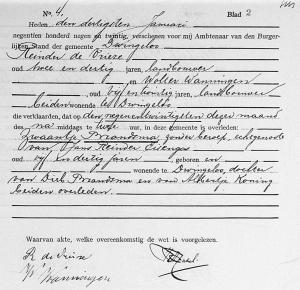 No. 4.
Blad 2
Heden den dertigsten Januari
negentien honderd negen en twintig, verschenen voor mij Ambtenaar van den Burger-
lijken Stand der gemeente Dwingeloo
Reinder de Vrieze
oud twee en dertig jaren, landbouwer
en Wolter Wanningen
oud vijf en veertig jaren, landbouwer
beiden wonende te Dwingeloo
die verklaarden, dat op den negenentwintigsten dezer maand
des na middags te twee ure, in deze gemeente is overleden:
Zwaantje Braandsma, zonder beroep, echtgenoote
van Hans Reinder Eisenga
oud vijf en dertig jaren, geboren en
wonende te Dwingeloo, dochter
van Dirk Braandsma en van Albertje Koning
beiden overleden.
Waarvan akte, welke overeenkomstig de wet is voorgelezen.
R de Vrieze
W Wanningen